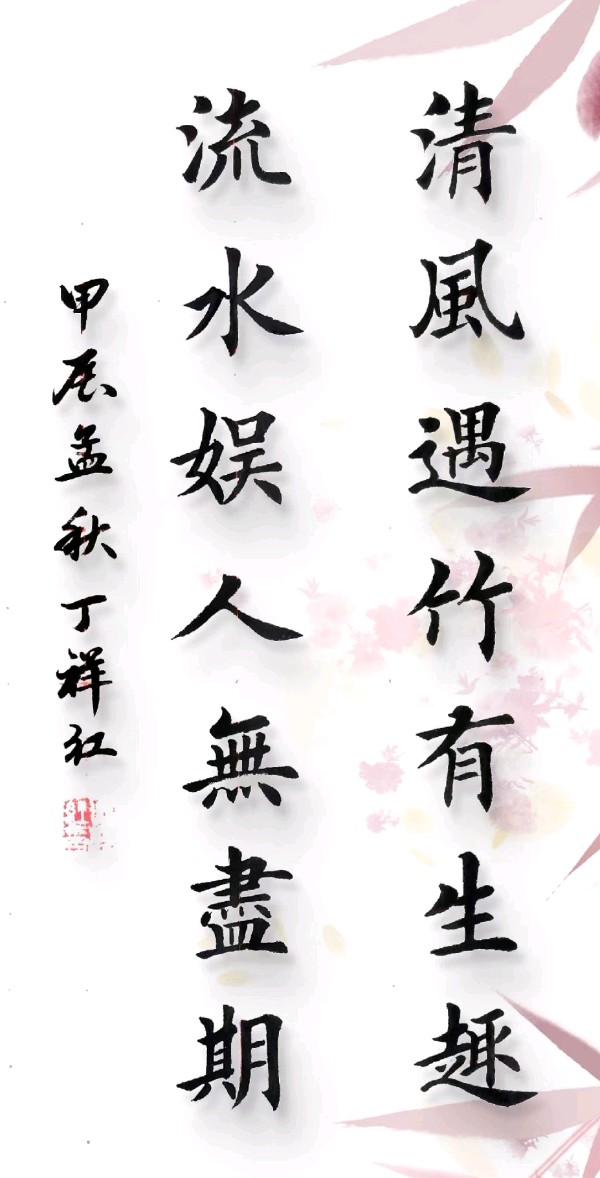 清風遇竹有生趣
流水娱人無盡期
甲辰孟秋丁祥红